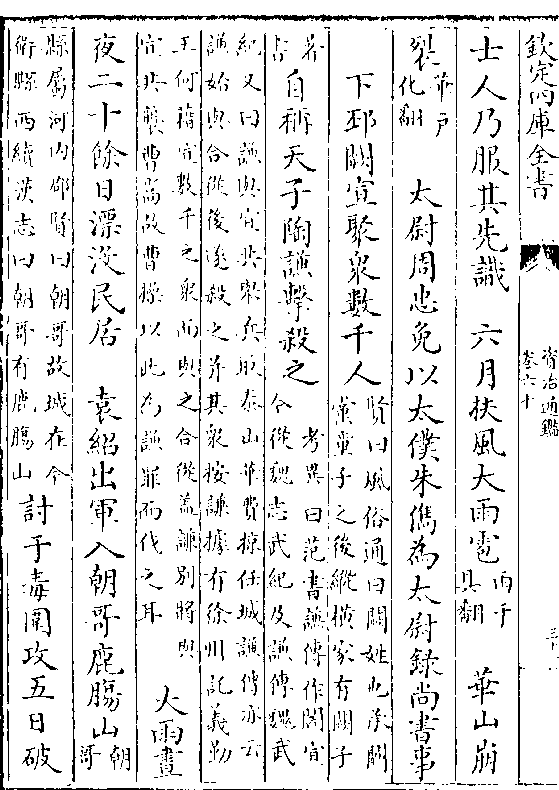 欽定四庫全書
資治通鑑
卷六十
士人乃服其先識　六月扶風大雨雹
雨于
具翻
華山崩
裂
華户
化翻
太尉周忠免以太僕朱儁為太尉錄尚書事
下邳闕宣聚衆數千人
賢曰風俗通曰闕姓也承闕
黨童子之後縱横家有闕子
著
書
自稱天子陶謙擊殺之
考異曰范書謙傳作閻宣
今從魏志武紀及謙傳魏武
紀又曰謙與宣共舉兵取泰山華費掠任城謙傳亦云
謙始與合從後遂殺之并其衆按謙據有徐州託義勤
王何藉宣數千之衆而與之合從盖謙别將與
宣共襲曹嵩故曹操以此為謙罪而伐之耳
大雨晝
夜二十餘日漂沒民居　袁紹出軍入朝哥鹿腸山
朝
哥
縣屬河内郡賢曰朝哥故城在今
衛縣西續漢志曰朝哥有鹿腸山
討于毒圍攻五日破